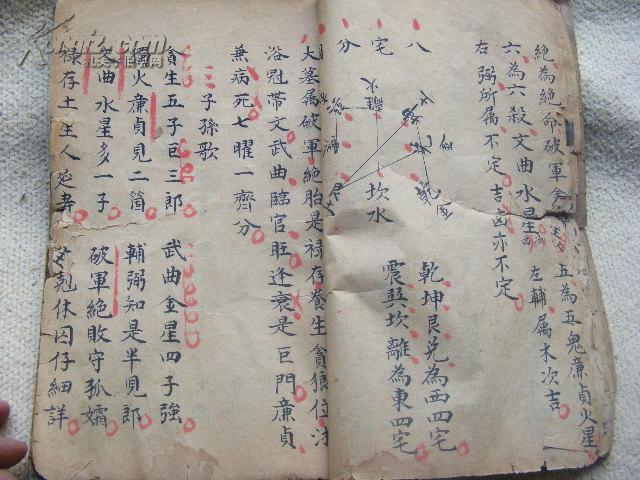 五為五鬼廉貞火星
左輔属木次吉
絶為絶命破軍金
六為六殺文曲水星凶
右弼所属不定吉凶亦不定
八宅分
離火
坎水
兌
乾
乾坤艮兌為西四宅
震巽坎離為東四宅
大墓属破軍絶胎是禄存養生貪狼位沐
浴冠帯文武曲臨官旺逢衰是巨門廉貞
兼病死七曜一齊分
三子孫歌
貪生五子巨三郎 武曲金星四子強
獨火廉貞見二箇 輔弼知是半見郎
文曲水星多一子 破軍絶敗守孤孀
禄存土主人延寿 生剋休囚仔細詳